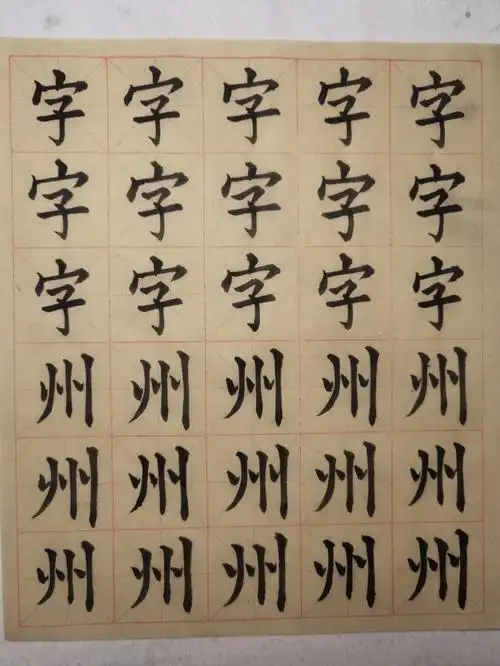 字字字字字
字字字字字
字字字字字
州州州州州
州州州州州
州州州州州